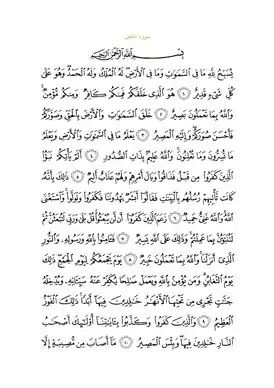 سورة التغابن
بِسْمِ اللَّهِ الرَّحْمَٰنِ الرَّحِيمِ
يُسَبِّحُ لِلَّهِ مَا فِي السَّمَٰوَٰتِ وَمَا فِي الْأَرْضِ لَهُ الْمُلْكُ وَلَهُ الْحَمْدُ وَهُوَ عَلَىٰ
كُلِّ شَيْءٍ قَدِيرٌ ١ هُوَ الَّذِي خَلَقَكُمْ فَمِنكُمْ كَافِرٌ وَمِنكُم مُّؤْمِنٌ
وَاللَّهُ بِمَا تَعْمَلُونَ بَصِيرٌ ٢ خَلَقَ السَّمَٰوَٰتِ وَالْأَرْضَ بِالْحَقِّ وَصَوَّرَكُمْ
فَأَحْسَنَ صُوَرَكُمْ وَإِلَيْهِ الْمَصِيرُ ٣ يَعْلَمُ مَا فِي السَّمَٰوَٰتِ وَالْأَرْضِ وَيَعْلَمُ
مَا تُسِرُّونَ وَمَا تُعْلِنُونَ وَاللَّهُ عَلِيمٌ بِذَاتِ الصُّدُورِ ٤ أَلَمْ يَأْتِكُمْ نَبَؤُا
الَّذِينَ كَفَرُوا مِن قَبْلُ فَذَاقُوا وَبَالَ أَمْرِهِمْ وَلَهُمْ عَذَابٌ أَلِيمٌ ٥ ذَٰلِكَ بِأَنَّهُ
كَانَت تَّأْتِيهِمْ رُسُلُهُم بِالْبَيِّنَٰتِ فَقَالُوا أَبَشَرٌ يَهْدُونَنَا فَكَفَرُوا وَتَوَلَّوا وَّاسْتَغْنَى
اللَّهُ وَاللَّهُ غَنِيٌّ حَمِيدٌ ٦ زَعَمَ الَّذِينَ كَفَرُوا أَن لَّن يُبْعَثُوا قُلْ بَلَىٰ وَرَبِّي لَتُبْعَثُنَّ ثُمَّ
لَتُنَبَّؤُنَّ بِمَا عَمِلْتُمْ وَذَٰلِكَ عَلَى اللَّهِ يَسِيرٌ ٧ فَـَٔامِنُوا بِاللَّهِ وَرَسُولِهِ وَالنُّورِ
الَّذِي أَنزَلْنَا وَاللَّهُ بِمَا تَعْمَلُونَ خَبِيرٌ ٨ يَوْمَ يَجْمَعُكُمْ لِيَوْمِ الْجَمْعِ ذَٰلِكَ
يَوْمُ التَّغَابُنِ وَمَن يُؤْمِن بِاللَّهِ وَيَعْمَلْ صَٰلِحًا يُكَفِّرْ عَنْهُ سَيِّـَٔاتِهِ وَيُدْخِلْهُ
جَنَّٰتٍ تَجْرِي مِن تَحْتِهَا الْأَنْهَٰرُ خَٰلِدِينَ فِيهَا أَبَدًا ذَٰلِكَ الْفَوْزُ
الْعَظِيمُ ٩ وَالَّذِينَ كَفَرُوا وَكَذَّبُوا بِـَٔايَٰتِنَا أُولَٰئِكَ أَصْحَٰبُ
النَّارِ خَٰلِدِينَ فِيهَا وَبِئْسَ الْمَصِيرُ ١٠ مَا أَصَابَ مِن مُّصِيبَةٍ إِلَّا